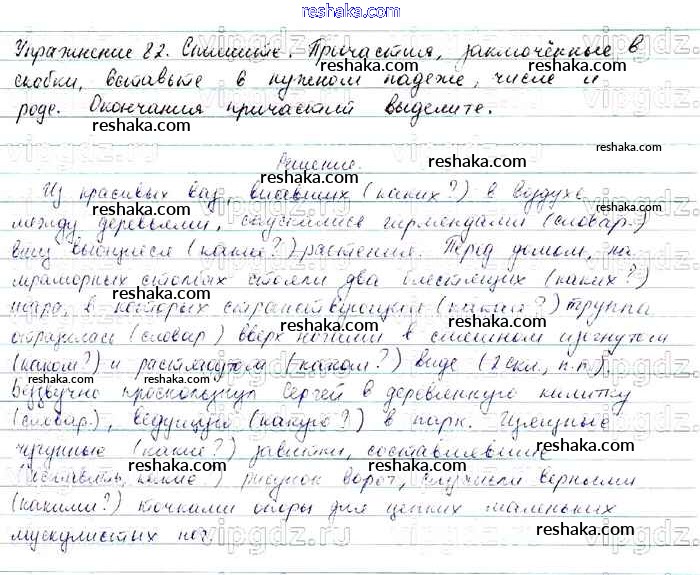 reshaka.com
Упражнение 82. Спишите. Причастия, заключённые в
скобки, вставьте в нужном падеже, числе и
роде. Окончания причастий выделите.
Решение.
Из красивых ваз, висевших (каких?) в воздухе
между деревьями, спускались гирляндами (словар.)
вниз вьющиеся (какие?) растения. Перед домом, на
мраморных столбах стояли два блестящих (каких?)
шара, в которых странствующая (какая?) труппа
отразилась (словар) вверх ногами в смешном изогнутом
(каком?) и растянутом (каком?) виде (2 скл., п.п.).
Беззвучно проскользнул Сергей в деревянную калитку
(словар.), ведущую (какую?) в парк. Изящные
чугунные (какие?) завитки, составлявшие
(составить, какие?) рисунок ворот, служили верными
(какими?) точками опоры для цепких маленьких
мускулистых ног.